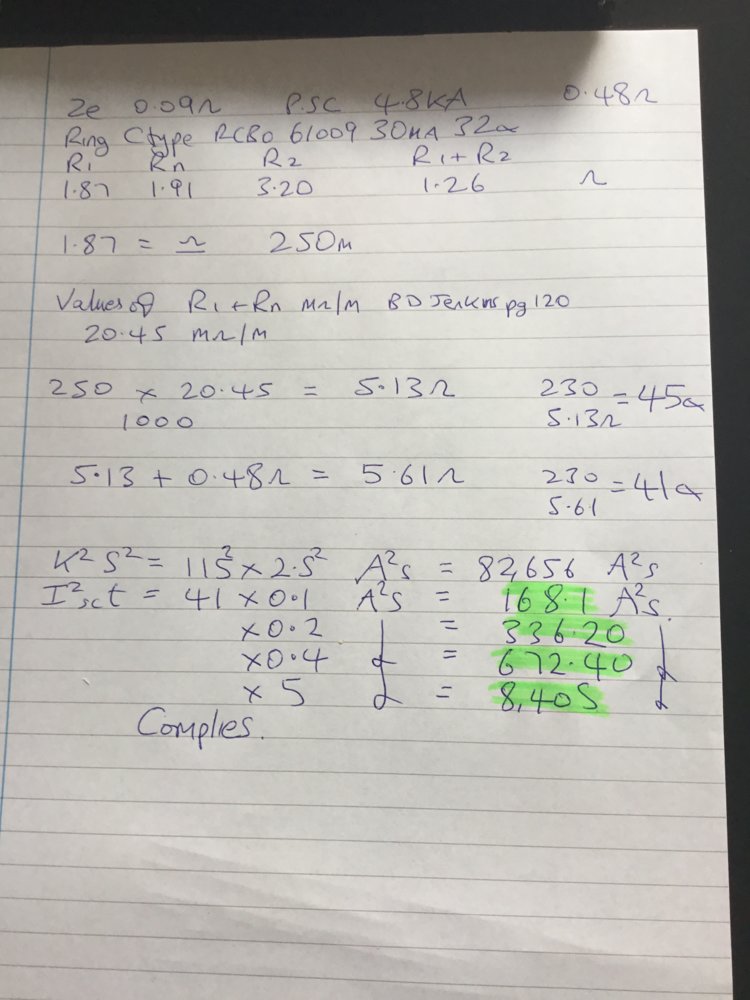 Ze 0.09Ω PSC 4.8KA 0.48Ω
Ring C type RCBO 61009 30MA 32a
R1 Rn R2 R1+R2
1.87 1.91 3.20 1.26 Ω
1.87 = Ω 250m
Values of R1 + Rn mΩ/M BD Jenkins pg 120
20.45 mΩ/M
250 x 20.45 = 5.13Ω 230 = 45a
1000 5.13Ω
5.13 + 0.48Ω = 5.61Ω 230 = 41a
5.61
K²S² = 115² x 2.5² A²s = 82,656 A²s
I²sc t = 41 x 0.1 A²s = 168.1 A²s.
x 0.2 = 336.20
x 0.4 = 672.40
x 5 = 8,405
Complies.